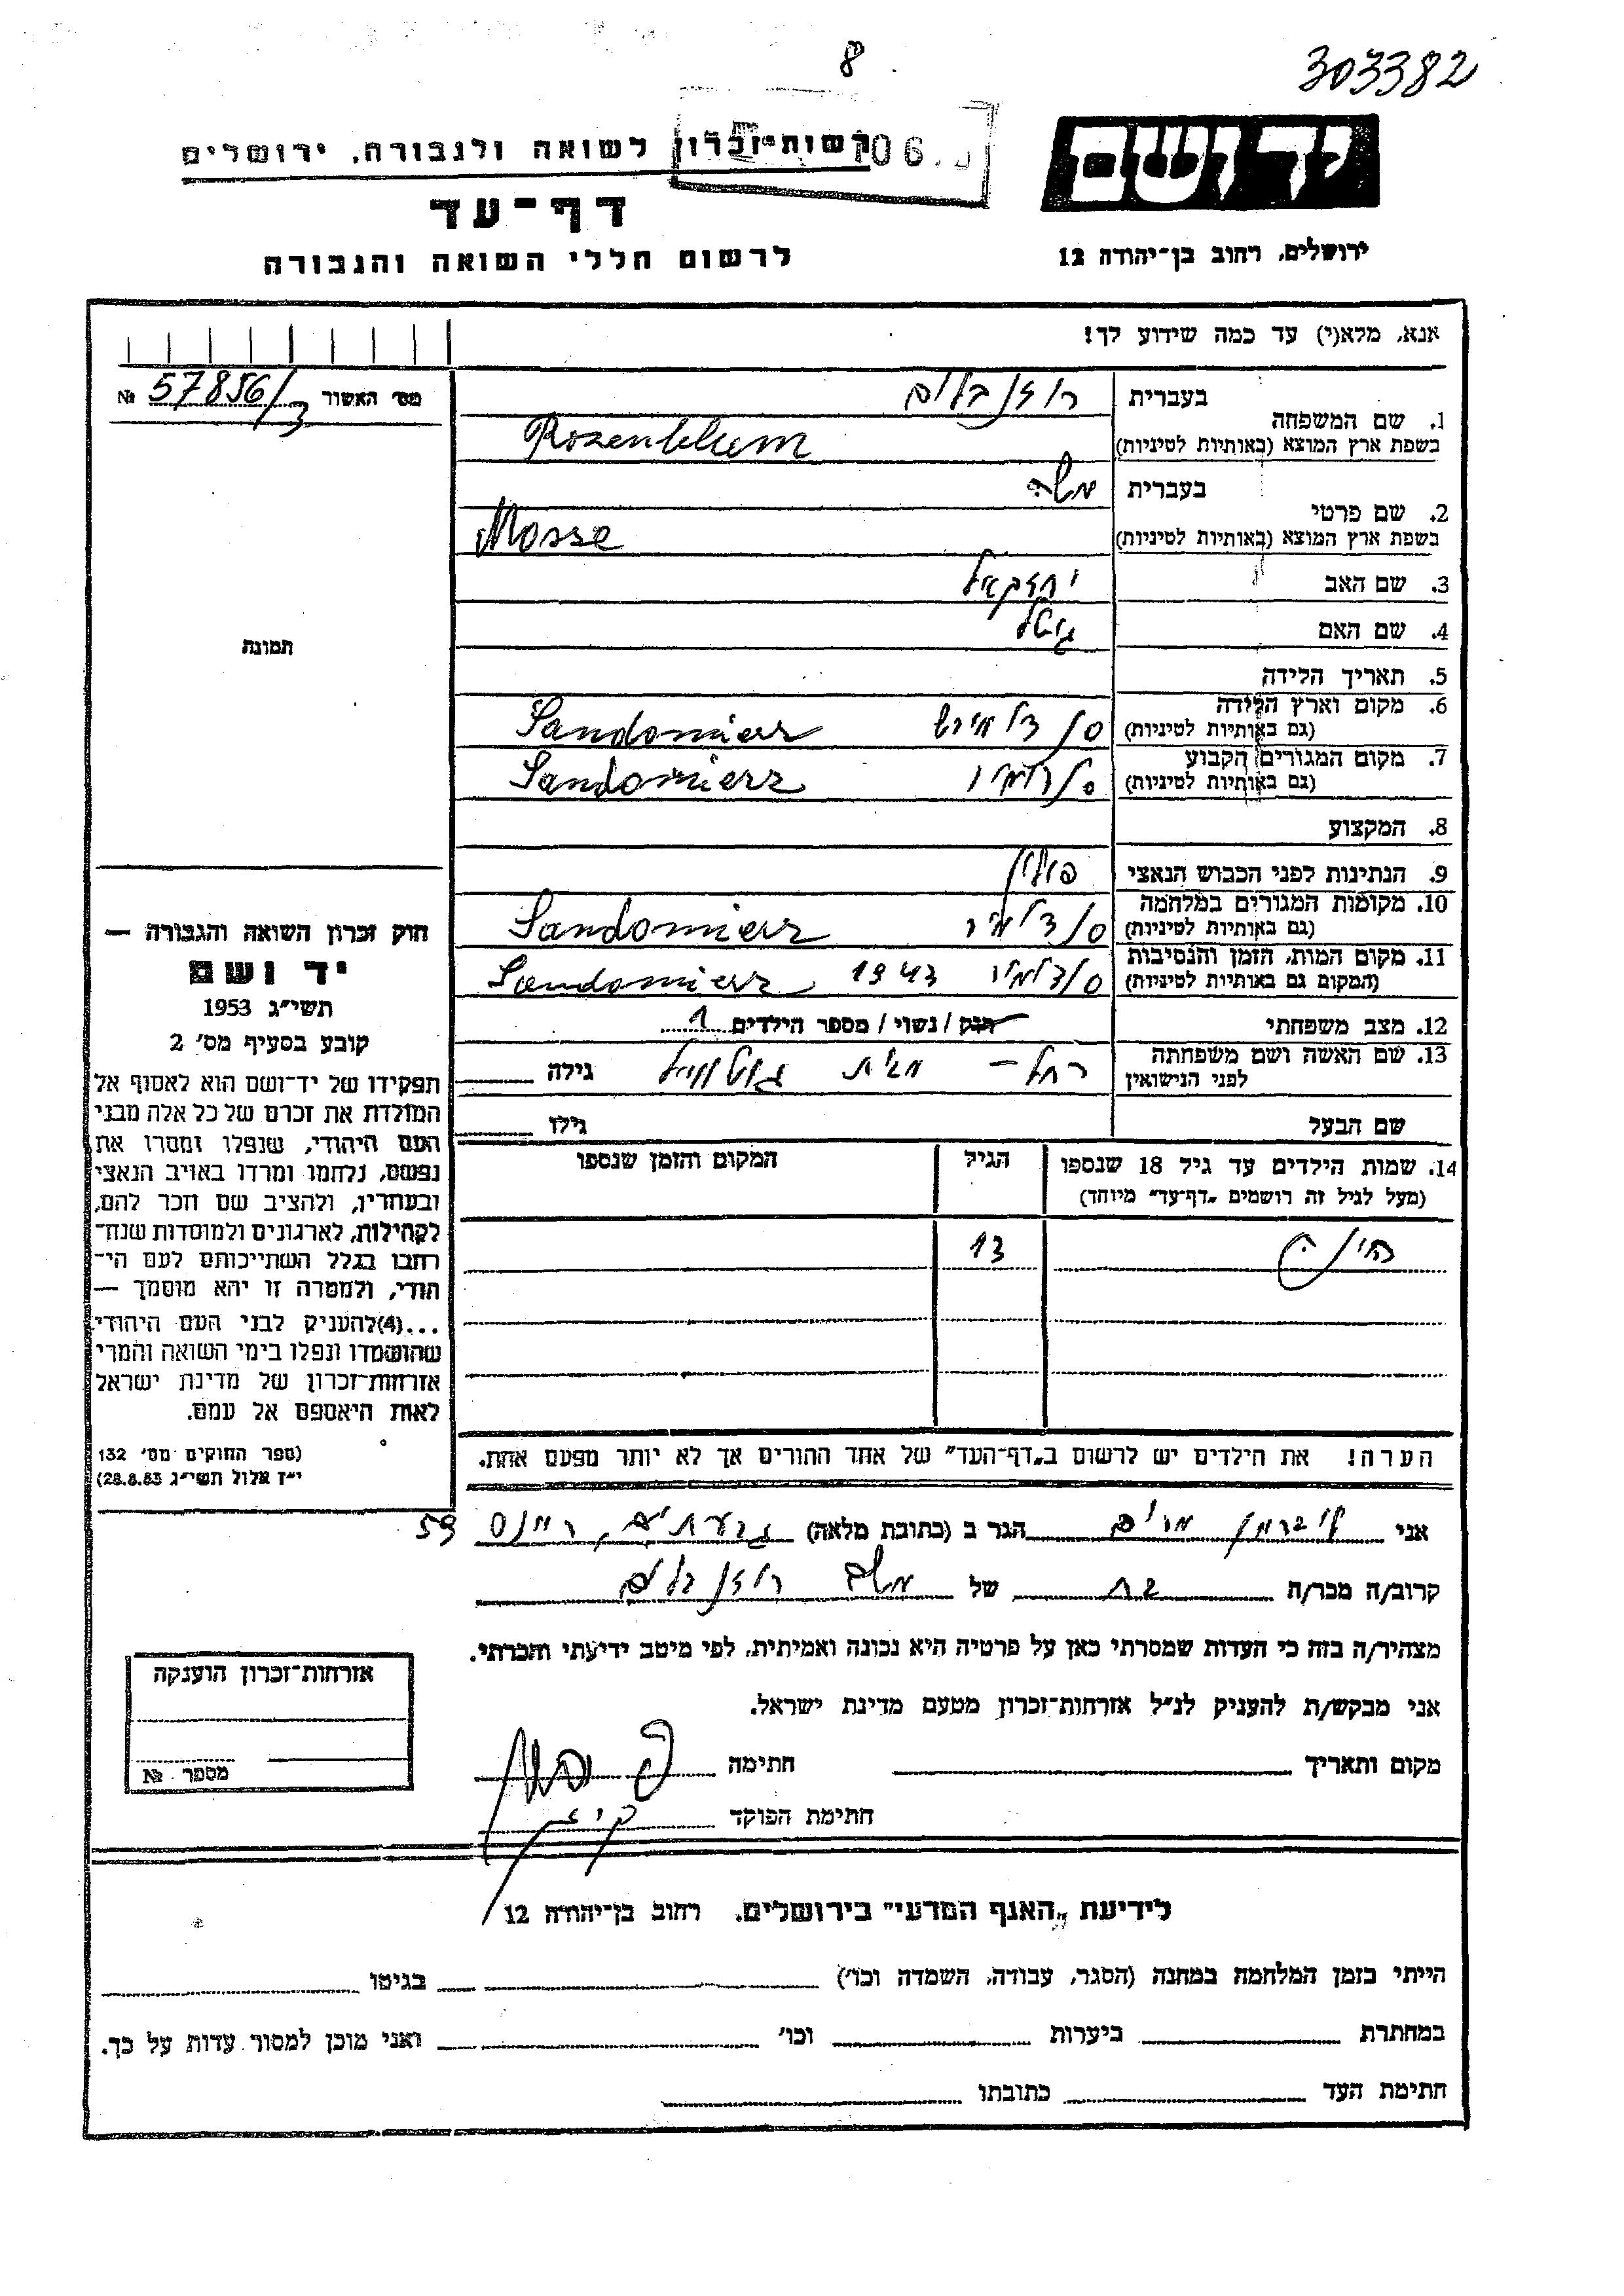 8
303382
רשות־זכרון לשואה ולגבורה, ירושלים
06
יד ושם
דף־עד
לרשום חללי השואה והגבורה
ירושלים, רחוב בן־יהודה 12
אנא, מלא(י) עד כמה שידוע לך!
מס׳ האשור 57856/3 №
1. שם המשפחה
בעברית רוזנבלום
בשפת ארץ המוצא (באותיות לטיניות) Rozenblum
2. שם פרטי
בעברית משה
בשפת ארץ המוצא (באותיות לטיניות) Mosse
3. שם האב יחזקאל
4. שם האם גיטל
תמונה
5. תאריך הלידה
6. מקום וארץ הלידה
(גם באותיות לטיניות) Sandomierz
7. מקום המגורים הקבוע
(גם באותיות לטיניות) Sandomierz
8. המקצוע
9. הנתינות לפני הכבוש הנאצי פולין
10. מקומות המגורים במלחמה
(גם באותיות לטיניות) Sandomierz
11. מקום המות, הזמן והנסיבות
(המקום גם באותיות לטיניות) 1943 Sandomierz
12. מצב משפחתי רוק / נשוי / מספר הילדים 1
13. שם האשה ושם משפחתה
לפני הנישואין רחל – מבית גילה
שם הבעל גילו
14. שמות הילדים עד גיל 18 שנספו
(מעל לגיל זה רושמים „דף־עד״ מיוחד)
הגיל
המקום והזמן שנספו
13
הערה! את הילדים יש לרשום ב„דף־העד״ של אחד ההורים אך לא יותר מפעם אחת.
חוק זכרון השואה והגבורה —
יד ושם
תשי״ג 1953
קובע בסעיף מס׳ 2
תפקידו של יד־ושם הוא לאסוף אל
המולדת את זכרם של כל אלה מבני
העם היהודי, שנפלו ומסרו את
נפשם, נלחמו ומרדו באויב הנאצי
ובעוזריו, ולהציב שם וזכר להם,
לקהילות, לארגונים ולמוסדות שנח־
רבו בגלל השתייכותם לעם הי־
הודי, ולמטרה זו יהא מוסמך —
...(4)להעניק לבני העם היהודי
שהושמדו ונפלו בימי השואה והמרי
אזרחות־זכרון של מדינת ישראל
לאות היאספם אל עמם.
(ספר החוקים מס׳ 132
י״ז אלול תשי״ג 28.8.53)
אני ליברמן מרים הגר ב (כתובת מלאה) גבעתיים, ריינס 59
קרוב/ה מכר/ה בת של משה רוזנבלום
מצהיר/ה בזה כי העדות שמסרתי כאן על פרטיה היא נכונה ואמיתית, לפי מיטב ידיעתי והכרתי.
אני מבקש/ת להעניק לנ״ל אזרחות־זכרון מטעם מדינת ישראל.
מקום ותאריך חתימה
חתימת הפוקד
אזרחות־זכרון הוענקה
מספר №
לידיעת „האגף המדעי״ בירושלים, רחוב בן־יהודה 12
הייתי בזמן המלחמה במחנה (הסגר, עבודה, השמדה וכו׳) בגיטו
במחתרת ביערות וכו׳ ואני מוכן למסור עדות על כך.
חתימת העד כתובתו